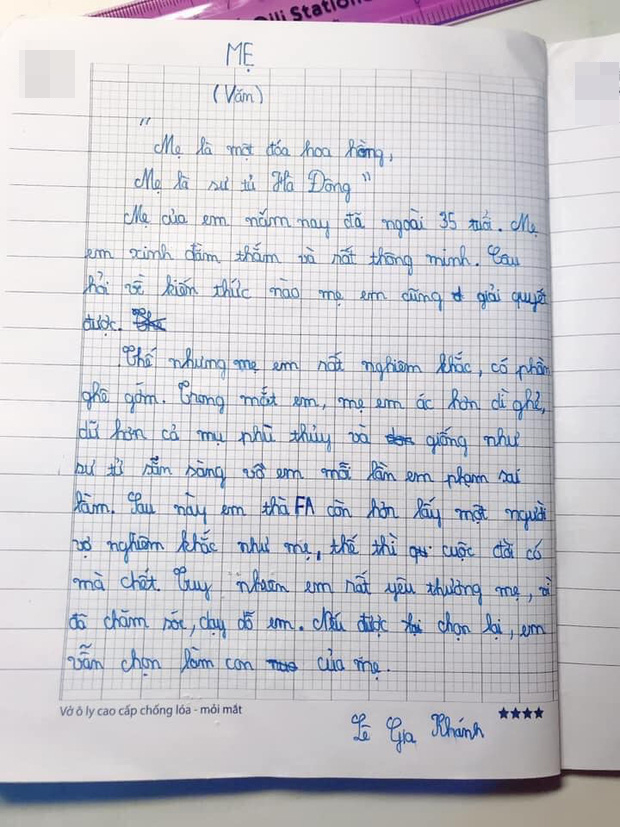 Oli Station
MẸ
(Văn)
"
Mẹ là một đóa hoa hồng,
Mẹ là sư tử Hà Đông"
Mẹ của em năm nay đã ngoài 35 tuổi. Mẹ
em xinh đằm thắm và rất thông minh. Câu
hỏi về kiến thức nào mẹ em cũng giải quyết
được.
Thế nhưng mẹ em rất nghiêm khắc, có phần
ghê gớm. Trong mắt em, mẹ em ác hơn dì ghẻ,
dữ hơn cả mụ phù thủy và giống như
sư tử sẵn sàng vồ em mỗi lần em phạm sai
lầm. Sau này em thà FA còn hơn lấy một người
vợ nghiêm khắc như mẹ, thế thì cuộc đời có
mà chết. Tuy nhiên em rất yêu thương mẹ, vì
đã chăm sóc, dạy dỗ em. Nếu được chọn lại, em
vẫn chọn làm con của mẹ.
Vở ô ly cao cấp chống lóa - mỏi mắt
Lê Gia Khánh